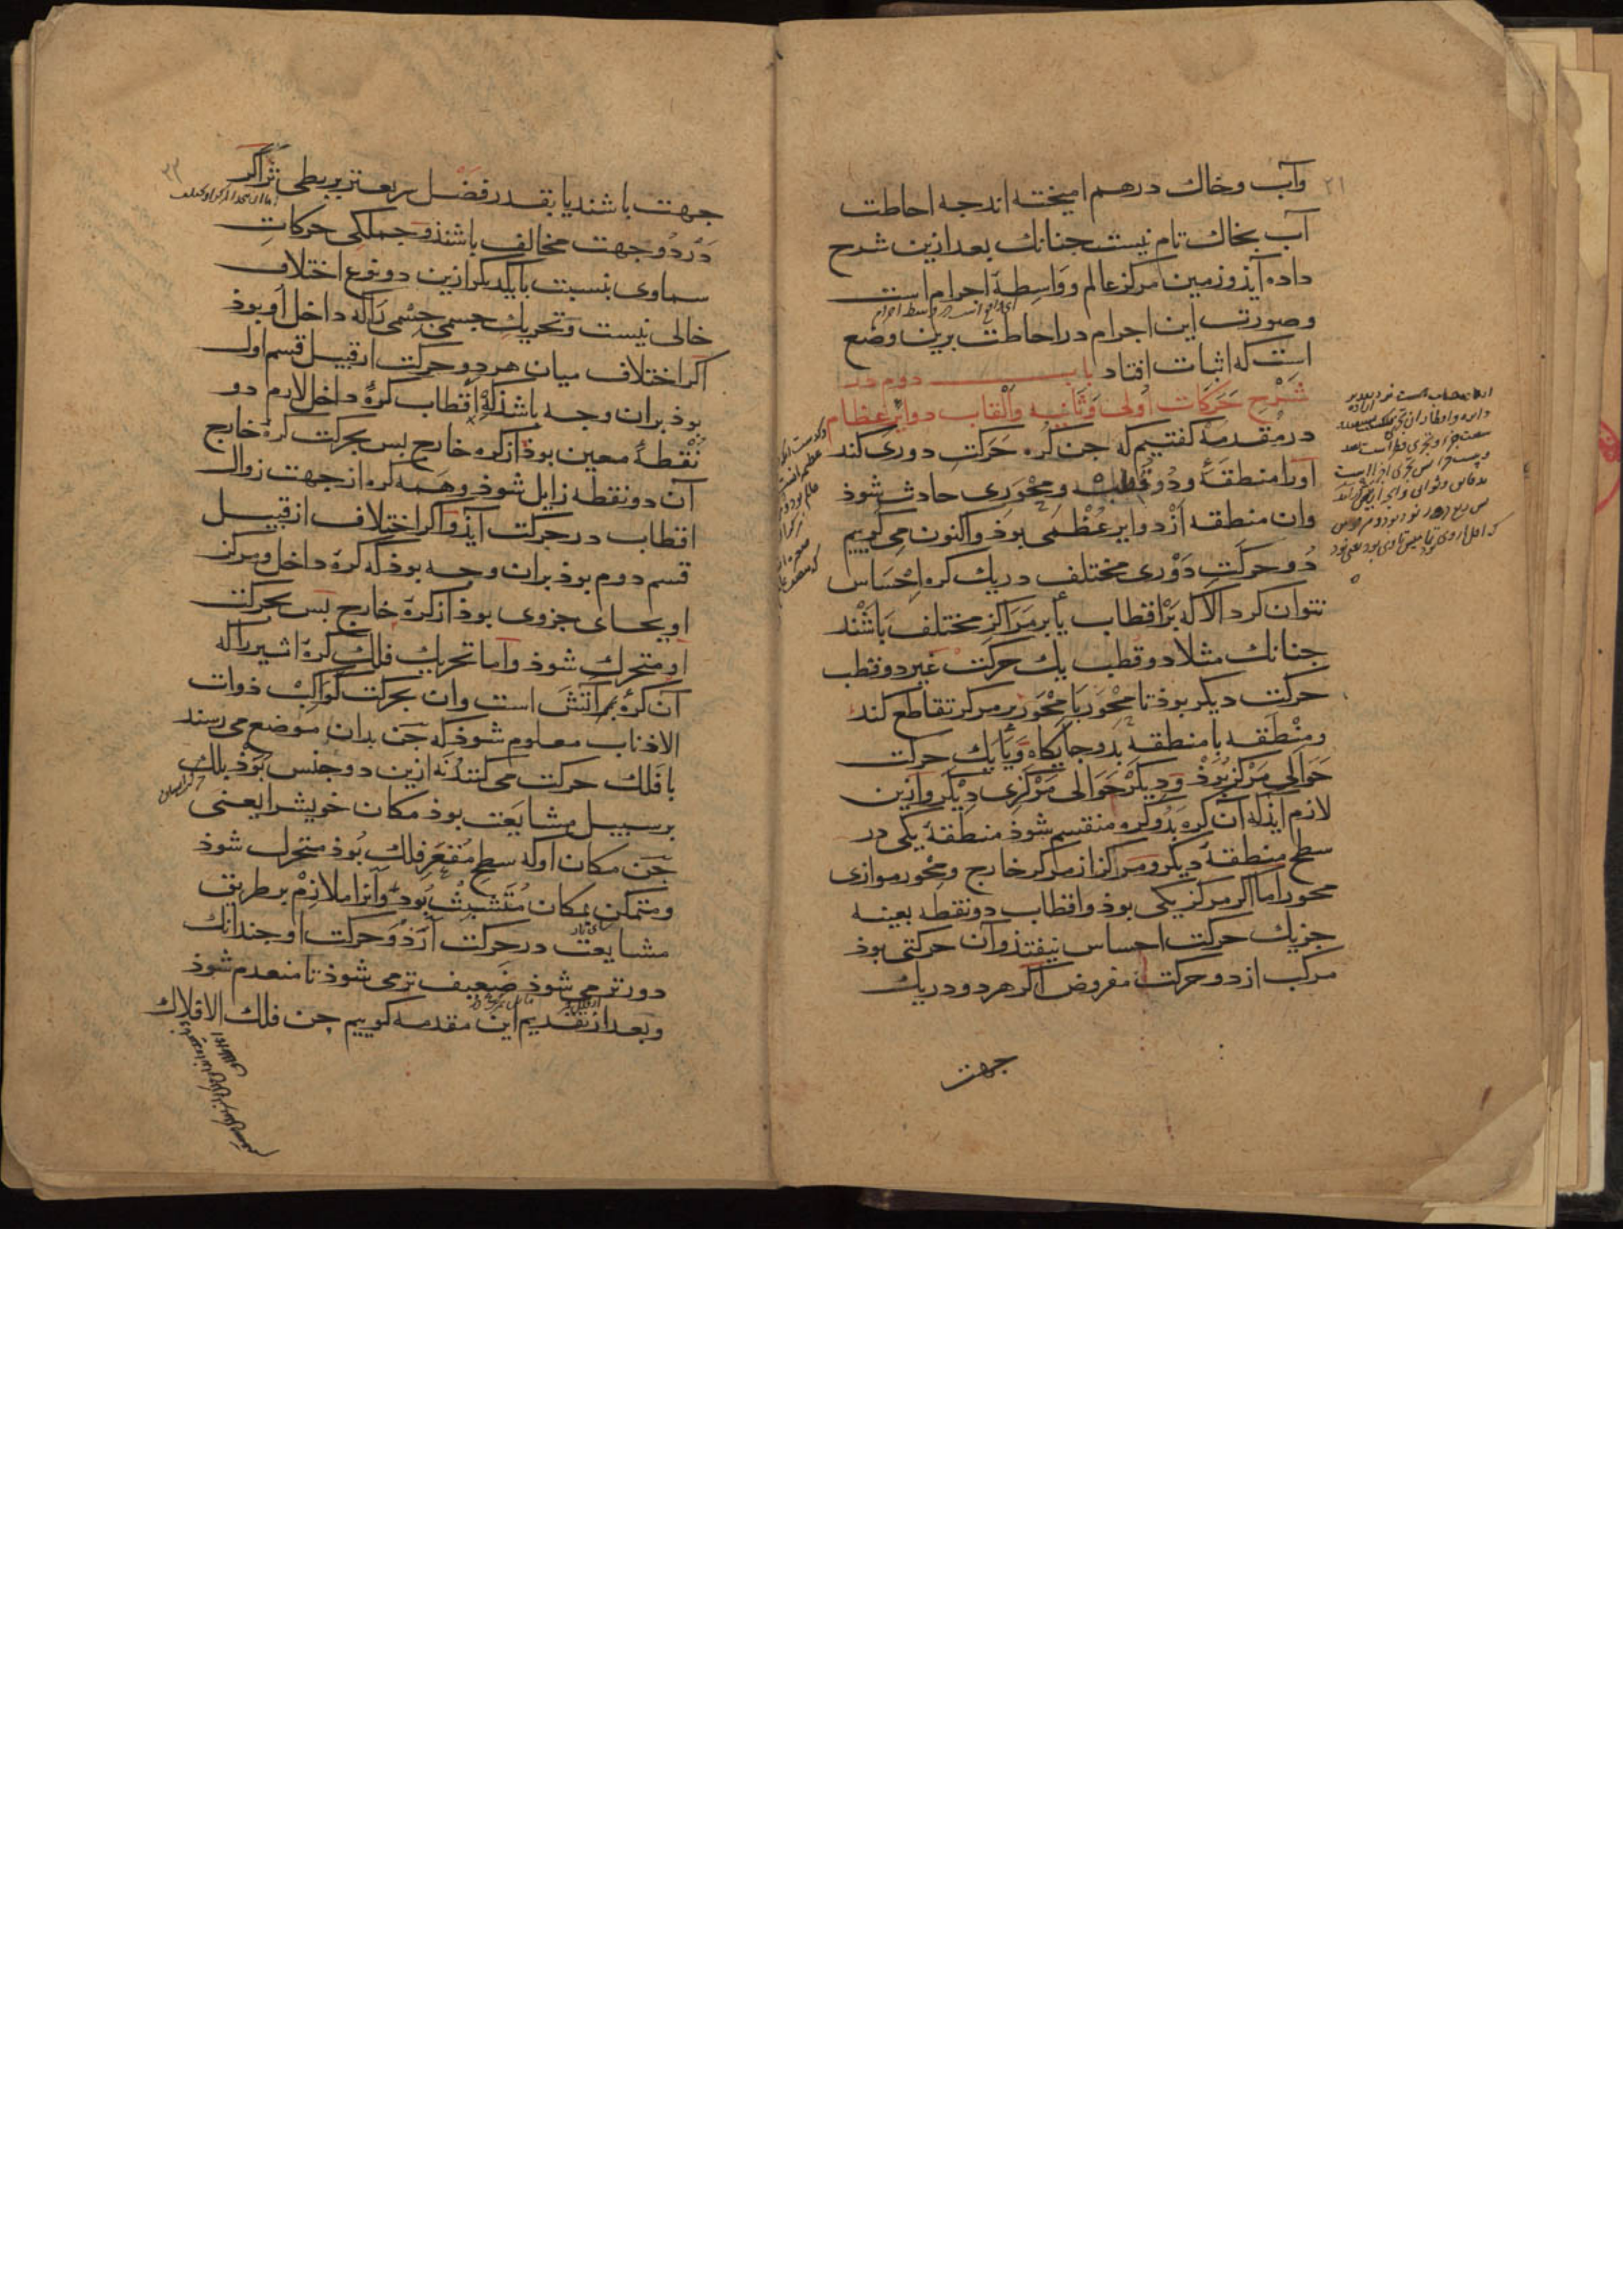 ۲۱
وآب وخاك درهم اميخته اند جه احاطت
آب بخاك تام نيست جنانك بعد ازين شرح
داده آيذ وزمين مركز عالم وواسطهٔ اجرام است
وصورت اين اجرام در احاطت برين وضع
است كه اثبات افتاد باب دوم در
شرح حركات اولى وثانيه والقاب دواير عظام
در مقدمه كفتيم كه جن كره حركت دورى كند
اورا منطقهٔ ودو قطب ومحورى حادث شوذ
وان منطقه از دواير عظمى بوذ واكنون مى كوييم
دو حركت دورى مختلف در يك كره احساس
نتوان كرد الا كه بر اقطاب يا بر مراكز مختلف باشند
جنانك مثلا دو قطب يك حركت غير دو قطب
حركت ديكر بوذ تا محور با محور بر مركز تقاطع كند
ومنطقه با منطقه بدو جايكاه ويا يك حركت
حوالى مركز بوذ وديكر حوالى مركزى ديكر وازين
لازم ايذ كه آن كره بدو كره منقسم شوذ منطقهٔ يكى در
سطح منطقهٔ ديكر ومراكز از مركز خارج ومحور موازى
محور اما اكر مركز يكى بوذ واقطاب دو نقطه بعينه
جز يك حركت احساس نيفتذ وآن حركتى بوذ
مركب از دو حركت مفروض اكر هر دو در يك
جهت
۲۲
جهت باشند يا بقدر فضل سريعتر بر بطى تر اكر
در دو جهت مخالف باشند وجملكى حركات
سماوى بنسبت با يكديكر ازين دو نوع اختلاف
خالى نيست وتحريك جسمى جسمى را كه داخل او بوذ
اكر اختلاف ميان هر دو حركت از قبيل قسم اول
بوذ بران وجه باشذ كه اقطاب كرهٔ داخل لازم دو
نقطهٔ معين بوذ از كره خارج بس بحركت كرهٔ خارج
آن دو نقطه زايل شوذ وهمه كره از جهت زوال
اقطاب در حركت آيذ واكر اختلاف از قبيل
قسم دوم بوذ بران وجه بوذ كه كرهٔ داخل ومركز
او بجاى جزوى بوذ از كرهٔ خارج بس بحركت
او متحرك شوذ واما تحريك فلك كرهٔ اثير را كه
آن كرهٔ آتش است وان بحركت كواكب ذوات
الاذناب معلوم شوذ كه جن بدان موضع مى رسند
با فلك حركت مى كنند نه ازين دو جنس بوذ بلك
بر سبيل مشايعت بوذ مكان خويش را يعنى
جن مكان او كه سطح مقعر فلك بوذ متحرك شوذ
ومتمكن بمكان متشبث بود وآنرا ملازم بر طريق
مشايعت در حركت آرذ وحركت او جندانك
دورتر مى شوذ ضعيف تر مى شوذ تا منعدم شوذ
وبعد از تقديم اين مقدمه كوييم جن فلك الافلاك